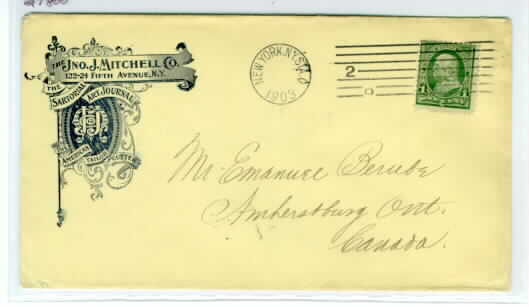 THE JNO. J. MITCHELL CO.
122-24 FIFTH AVENUE, N.Y.
THE
SARTORIAL ART JOURNAL
AMERICAN TAILOR CUTTER
NEW YORK, N.Y. STA.
1903
2
1 1
Mr. Emanuel Berube
Amherstburg Ont.
Canada.